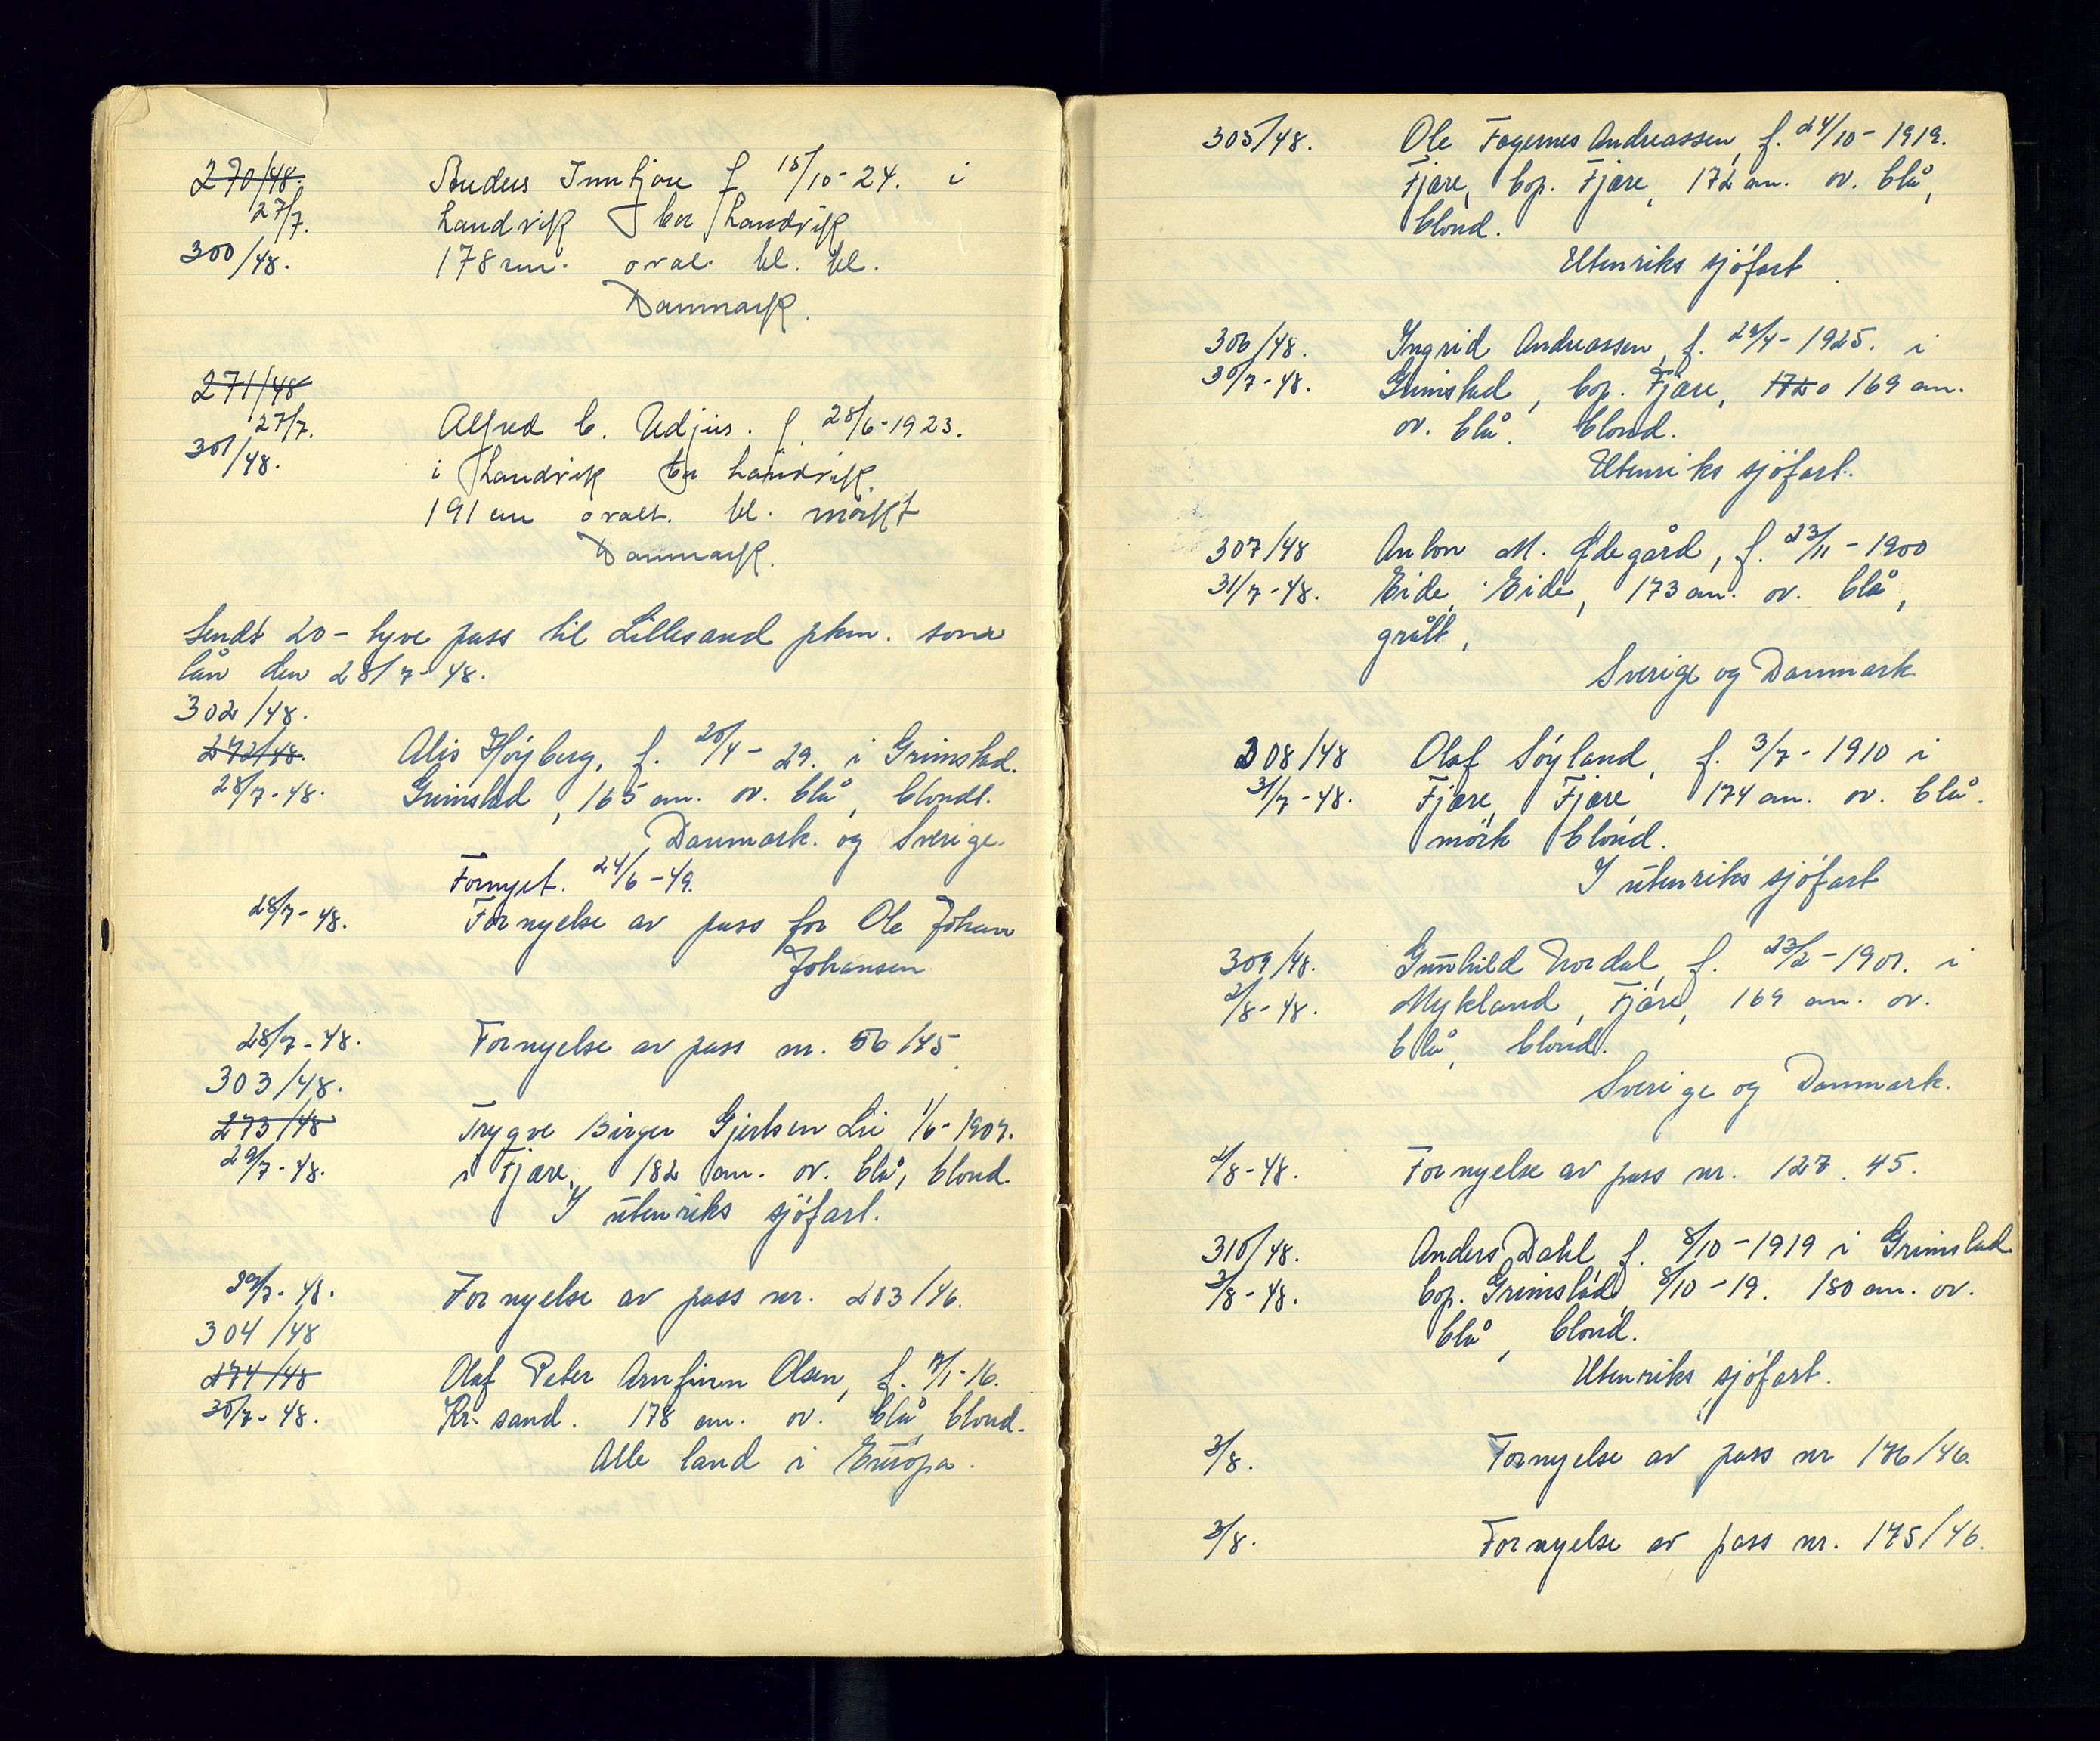 270/48. Anders Inntjore f 15/10-24. i
27/7. Landvik bor Landvik
300/48. 178 cm. oval. bl. bl.
Danmark.
271/48
27/7. Alfred C. Udjus. f. 28/6-1923.
301/48. i Landvik bor Landvik.
191 cm ovalt. bl. mørkt
Danmark.
Sendt 20 - tyve pass til Lillesand pkm. som
lån den 28/7-48.
302/48.
272/48. Alis Höyberg, f. 20/4-29. i Grimstad.
28/7-48. Grimstad, 165 cm. ov. blå, blondt.
Danmark. og Sverige.
Fornyet. 24/6-49.
28/7-48. Fornyelse av pass for Ole Johan
Johansen
28/7-48. Fornyelse av pass nr. 56/45.
303/48.
273/48 Trygve Birger Gjertsen Lie 1/6-1907.
29/7-48. i Fjære, 182 cm. ov. blå, blond.
I utenriks sjöfart.
29/7-48. Fornyelse av pass nr. 203/46.
304/48
274/48 Olaf Peter Arnfinn Olsen, f. 17/1-16.
30/7-48. Kr. sand. 178 cm. ov. blå blond.
Alle land i Europa.
305/48. Ole Fagernes Andreassen, f. 24/10-1919.
Fjære, bop. Fjære, 172 cm. ov. blå,
blond.
Utenriks sjöfart
306/48. Ingrid Andreassen, f. 29/4-1925. i
30/7-48. Grimstad, bop. Fjære, 1720 169 cm.
ov. blå. blond.
Utenriks sjöfart.
307/48 Anton M. Ødegård, f. 23/11-1900
31/7-48. Eide, Eide, 173 cm. ov. blå,
grått,
Sverige og Danmark
308/48 Olaf Söyland, f. 3/7-1910 i
31/7-48. Fjære, Fjære 174 cm. ov. blå.
mörk blond.
I utenriks sjöfart
309/48. Gunhild Nordal, f. 23/2-1901. i
2/8-48. Mykland, Fjære, 169 cm. ov.
blå, blond.
Sverige og Danmark.
2/8-48. Fornyelse av pass nr. 127. 45.
310/48. Anders Dahl, f. 8/10-1919 i Grimstad
3/8-48. bop. Grimstad 8/10-19. 180 cm. ov.
blå, blond.
Utenriks sjöfart.
3/8. Fornyelse av pass nr 176/46.
3/8. Fornyelse av pass nr. 175/46.